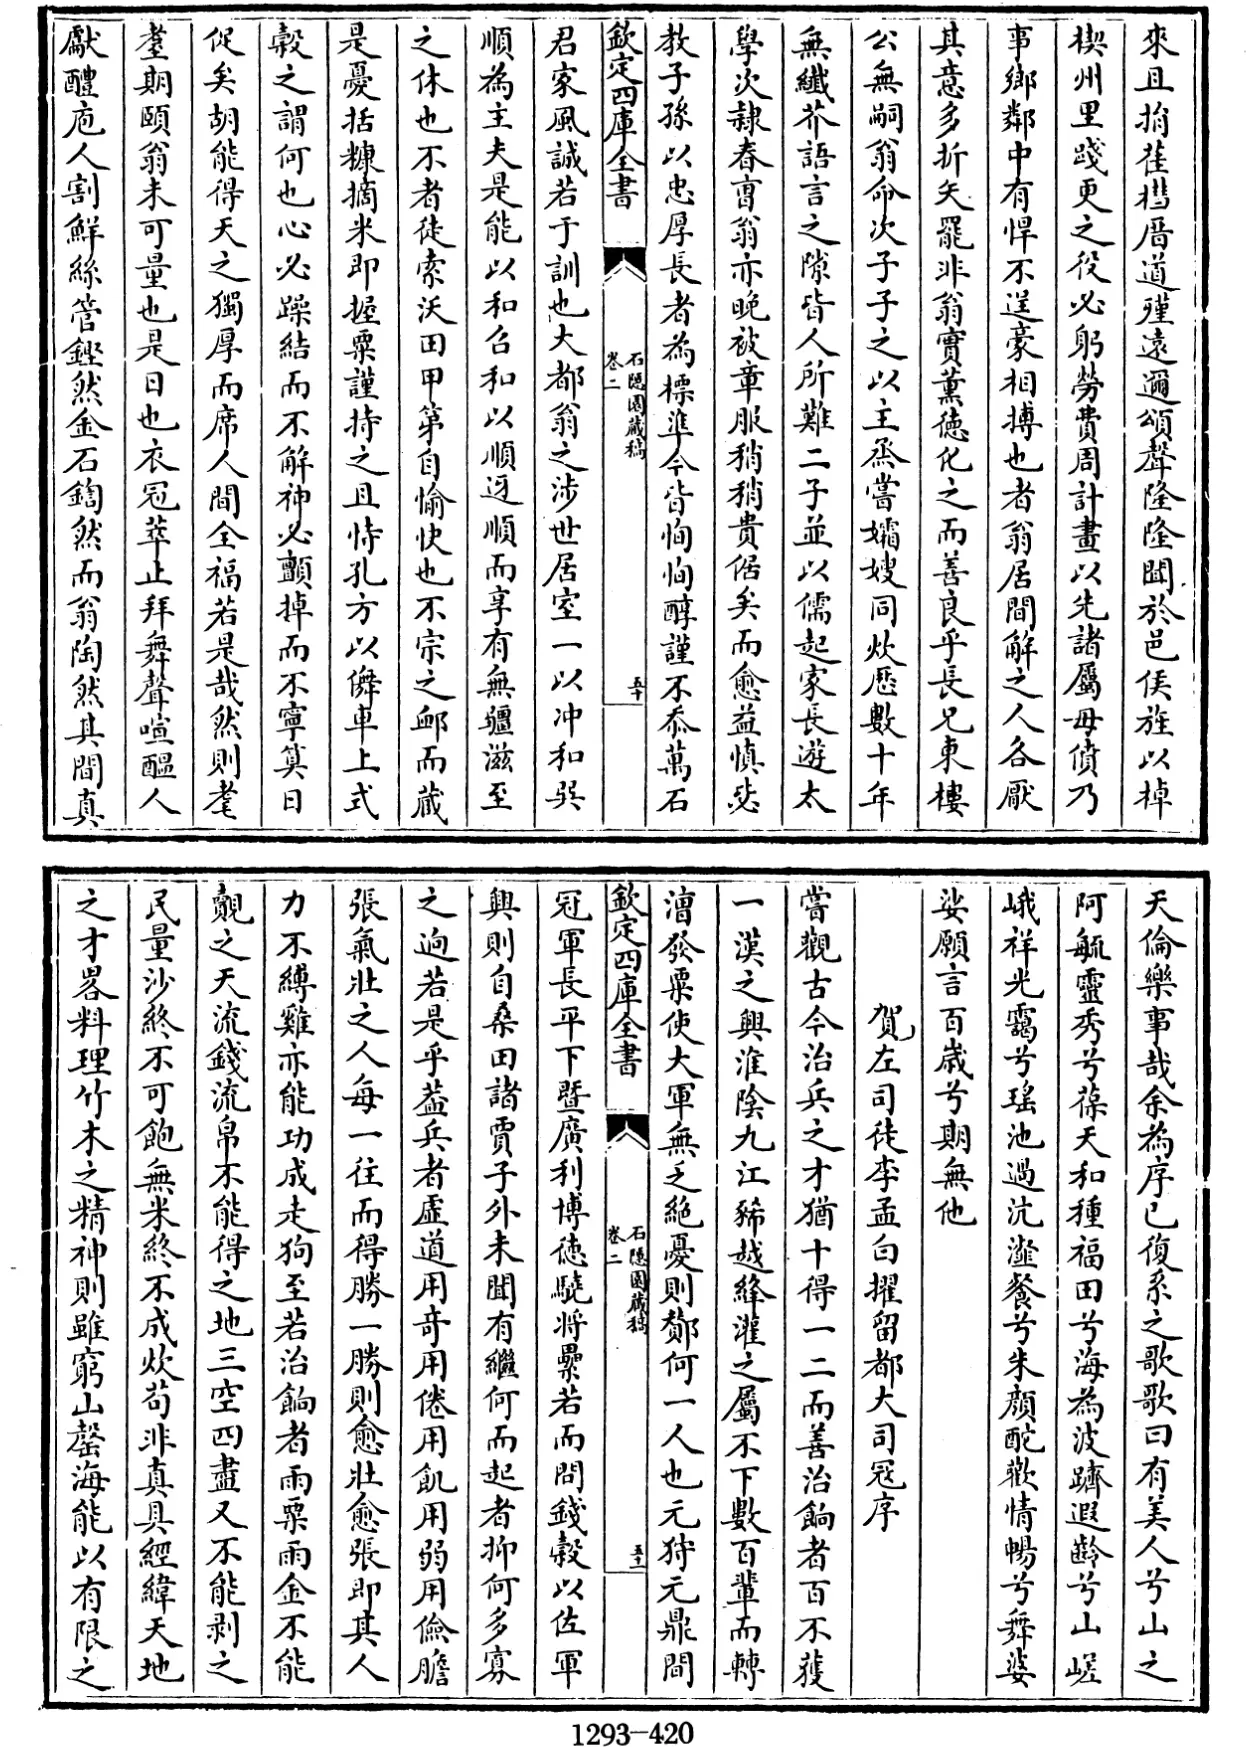 來且捐萑槥厝道殣遠邇頌聲隆隆聞於邑侯旌以棹
楔州里踐更之役必躬勞費周計畫以先諸屬毋僨乃
事鄉鄰中有悍不逞豪相搏也者翁居間解之人各厭
其意多折矢罷非翁實薰徳化之而善良乎長兄東樓
公無嗣翁命次子子之以主烝嘗孀嫂同炊歴數十年
無纖芥語言之隙皆人所難二子並以儒起家長遊太
學次隸春官翁亦晚被章服稍稍貴倨矣而愈益慎毖
教子孫以忠厚長者為標準今皆恂恂醇謹不忝萬石
欽定四庫全書
石隠園藏稿
卷二
五十
君家風誠若于訓也大都翁之涉世居室一以冲和巽
順為主夫是能以和召和以順迓順而享有無疆滋至
之休也不者徒索沃田甲第自愉快也不宗之卹而蔵
是憂括糠摘米即握粟謹持之且恃孔方以儕車上式
穀之謂何也心必躁結而不解神必顫掉而不寧筭日
促矣胡能得天之獨厚而席人間全福若是哉然則耄
耋期頤翁未可量也是日也衣冠萃止拜舞聲喧醖人
獻醴庖人割鮮絲管鏗然金石鍧然而翁陶然其間真
天倫樂事哉余為序已復系之歌歌曰有美人兮山之
阿毓靈秀兮葆天和種福田兮海為波躋遐齡兮山嵯
峨祥光靄兮瑤池過沆瀣餐兮朱顔酡歡情暢兮舞婆
娑願言百歳兮期無他
賀左司徒李孟白擢留都大司冦序
嘗觀古今治兵之才猶十得一二而善治餉者百不獲
一漢之興淮陰九江豨越絳灌之屬不下數百輩而轉
漕發粟使大軍無乏絶憂則酇何一人也元狩元鼎間
欽定四庫全書
石隠園藏稿
卷二
五十一
冠軍長平下暨廣利博徳驍将纍若而問錢穀以佐軍
興則自桑田諸賈子外未聞有繼何而起者抑何多寡
之逈若是乎葢兵者虛道用竒用倦用飢用弱用儉膽
張氣壯之人每一往而得勝一勝則愈壯愈張即其人
力不縛雞亦能功成走狗至若治餉者雨粟雨金不能
覿之天流錢流帛不能得之地三空四盡又不能剥之
民量沙終不可飽無米終不成炊苟非真具經緯天地
之才畧料理竹木之精神則雖窮山罄海能以有限之
1293-420